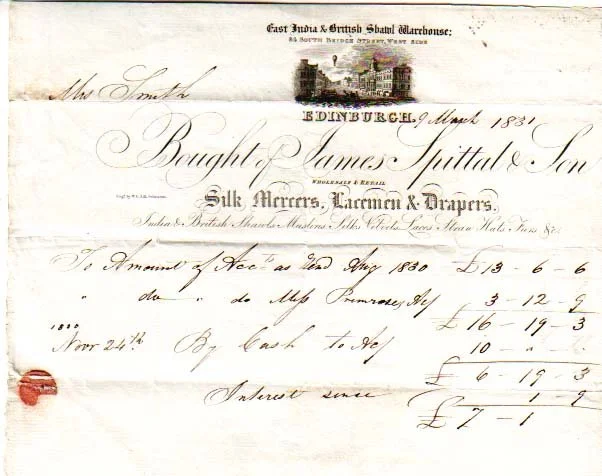 East India & British Shawl Warehouse;
84 SOUTH BRIDGE STREET, WEST SIDE
Mrs Smith
EDINBURGH. 9 March 1831
Bought of James Spittal & Son
WHOLESALE & RETAIL
Silk Mercers, Lacemen & Drapers.
India & British Shawls Muslins Silks Velvets Laces Straw Hats Furs &c
To Amount of Acct as 2nd Aug 1830 £13-6-6
" do " do Miss Primrose's A/ 3-12-9
£16-19-3
1830
Novr 24th By Cash to A/ 10 " "
£6-19-3
Interest since 1-9
£7-1